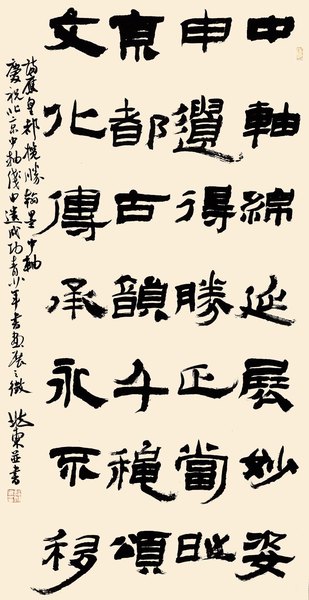 中軸綿延展妙姿
申遺得勝正當時
京都古韻千穐頌
文化傳承永不移
詩應皇都攬勝翰墨中軸
慶祝北京中軸綫申遺成功青少年書畫展之徵 東並書